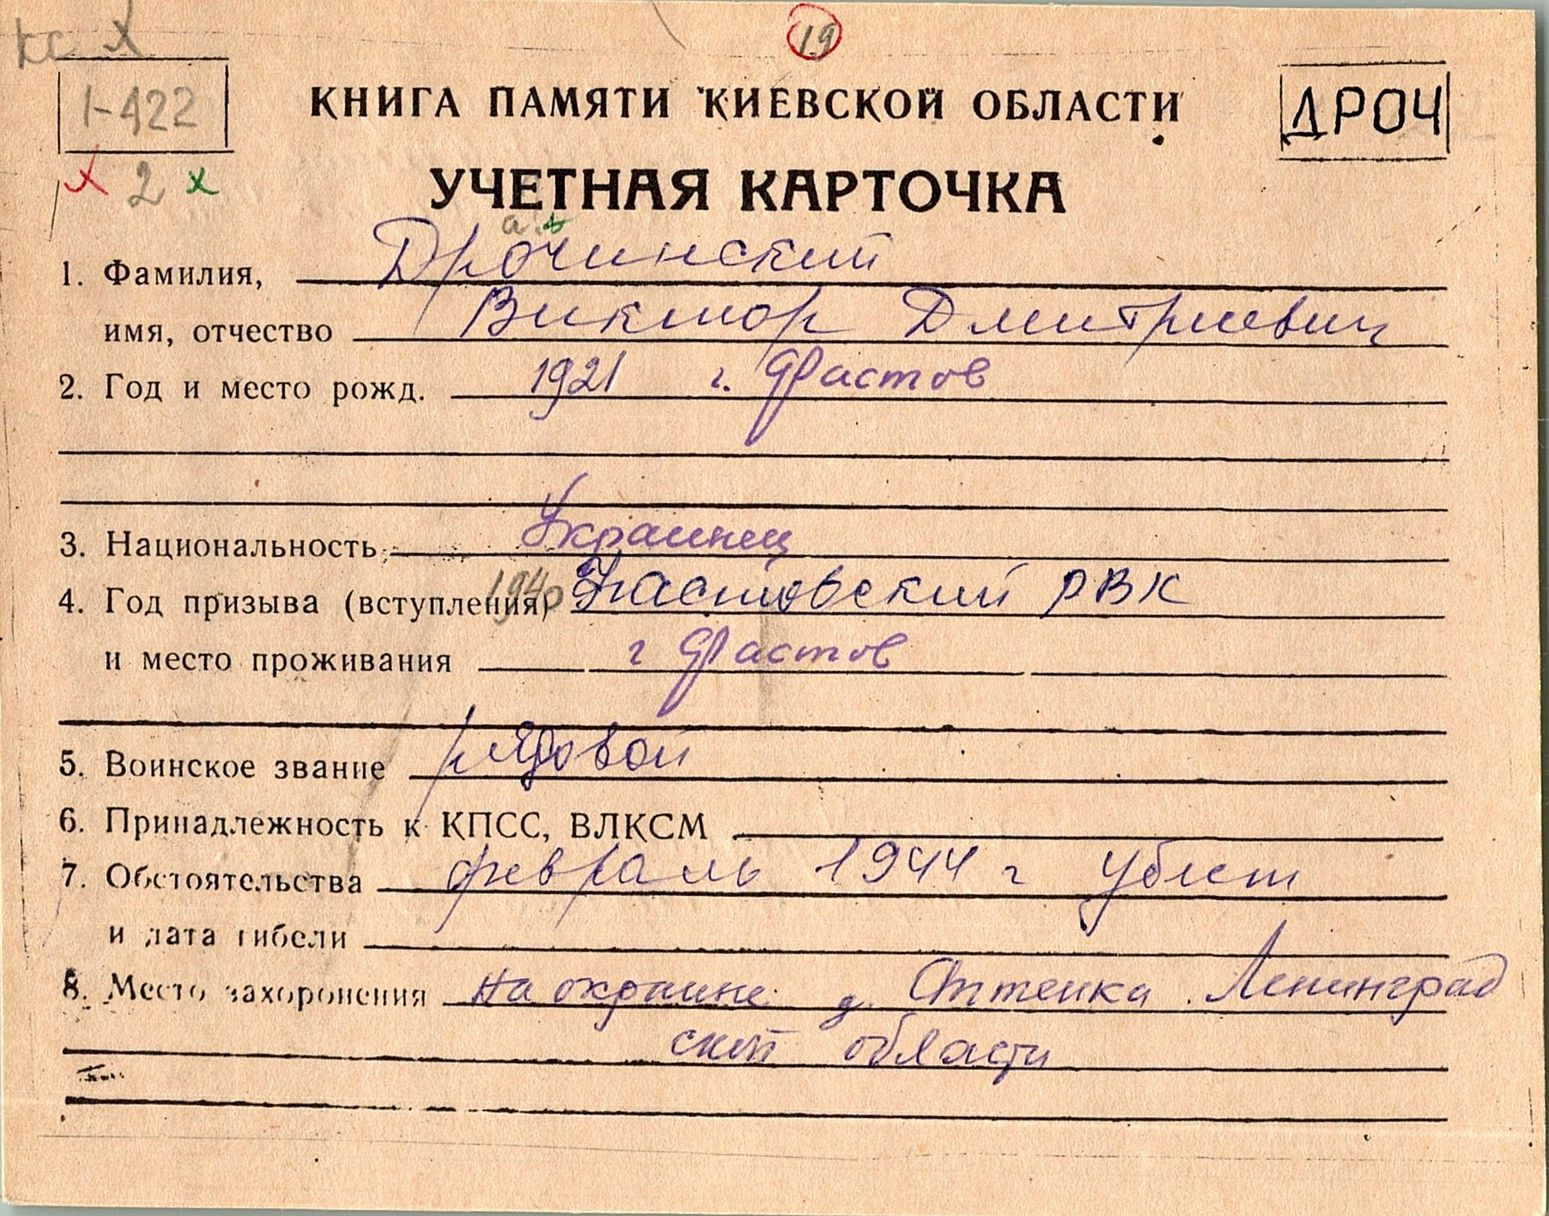 кс х
19
1-422
КНИГА ПАМЯТИ КИЕВСКОЙ ОБЛАСТИ
ДРОЧ
х 2 х
УЧЕТНАЯ КАРТОЧКА
а.
1. Фамилия, Дрочинский
имя, отчество Виктор Дмитриевич
2. Год и место рожд. 1921 г. Фастов
3. Национальность Украинец
4. Год призыва (вступления) 1940 Фастовский РВК
и место проживания г Фастов
5. Воинское звание рядовой
6. Принадлежность к КПСС, ВЛКСМ
7. Обстоятельства февраль 1944 г убит
и дата гибели
8. Место захоронения на окраине д. Ленинград
ской области